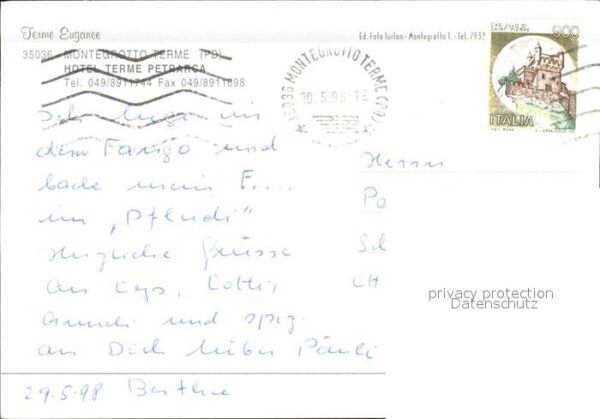 Terme Euganee
Ed. Foto Turlon - Montegrotto T. - Tel. 7932
35036 MONTEGROTTO TERME (PD)
HOTEL TERME PETRARCA
Tel. 049/8911744 Fax 049/8911698
35036 MONTEGROTTO TERME (PD)
30.5.98
800
ITALIA
Ich liege in
dem Fango und
bade mein F....
im "Pfludi"
Herzliche Grüsse
an
und
an Dich lieber Päuli
29.5.98 Berthie
Herrn
CH
privacy protection
Datenschutz